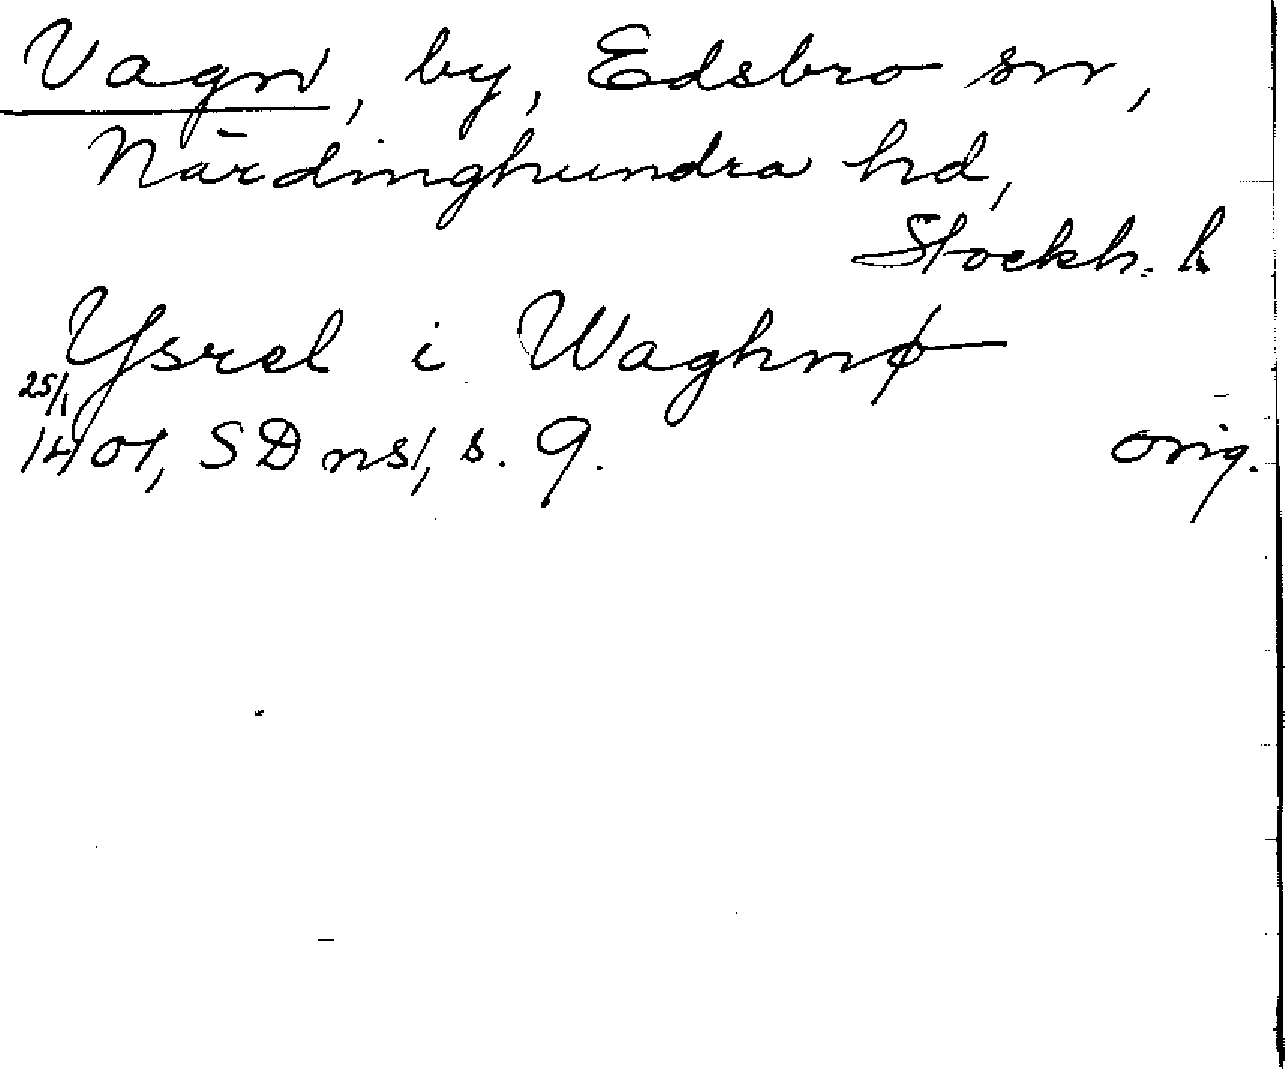 Vagn, by, Edsbro sn,
Närdinghundra hd,
Stockh. l
Ysrel i Waghnø
25/1
1401, SD ns1, s. 9. orig.